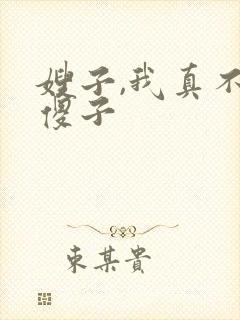 嫂子,我真不
傻子
东某贵